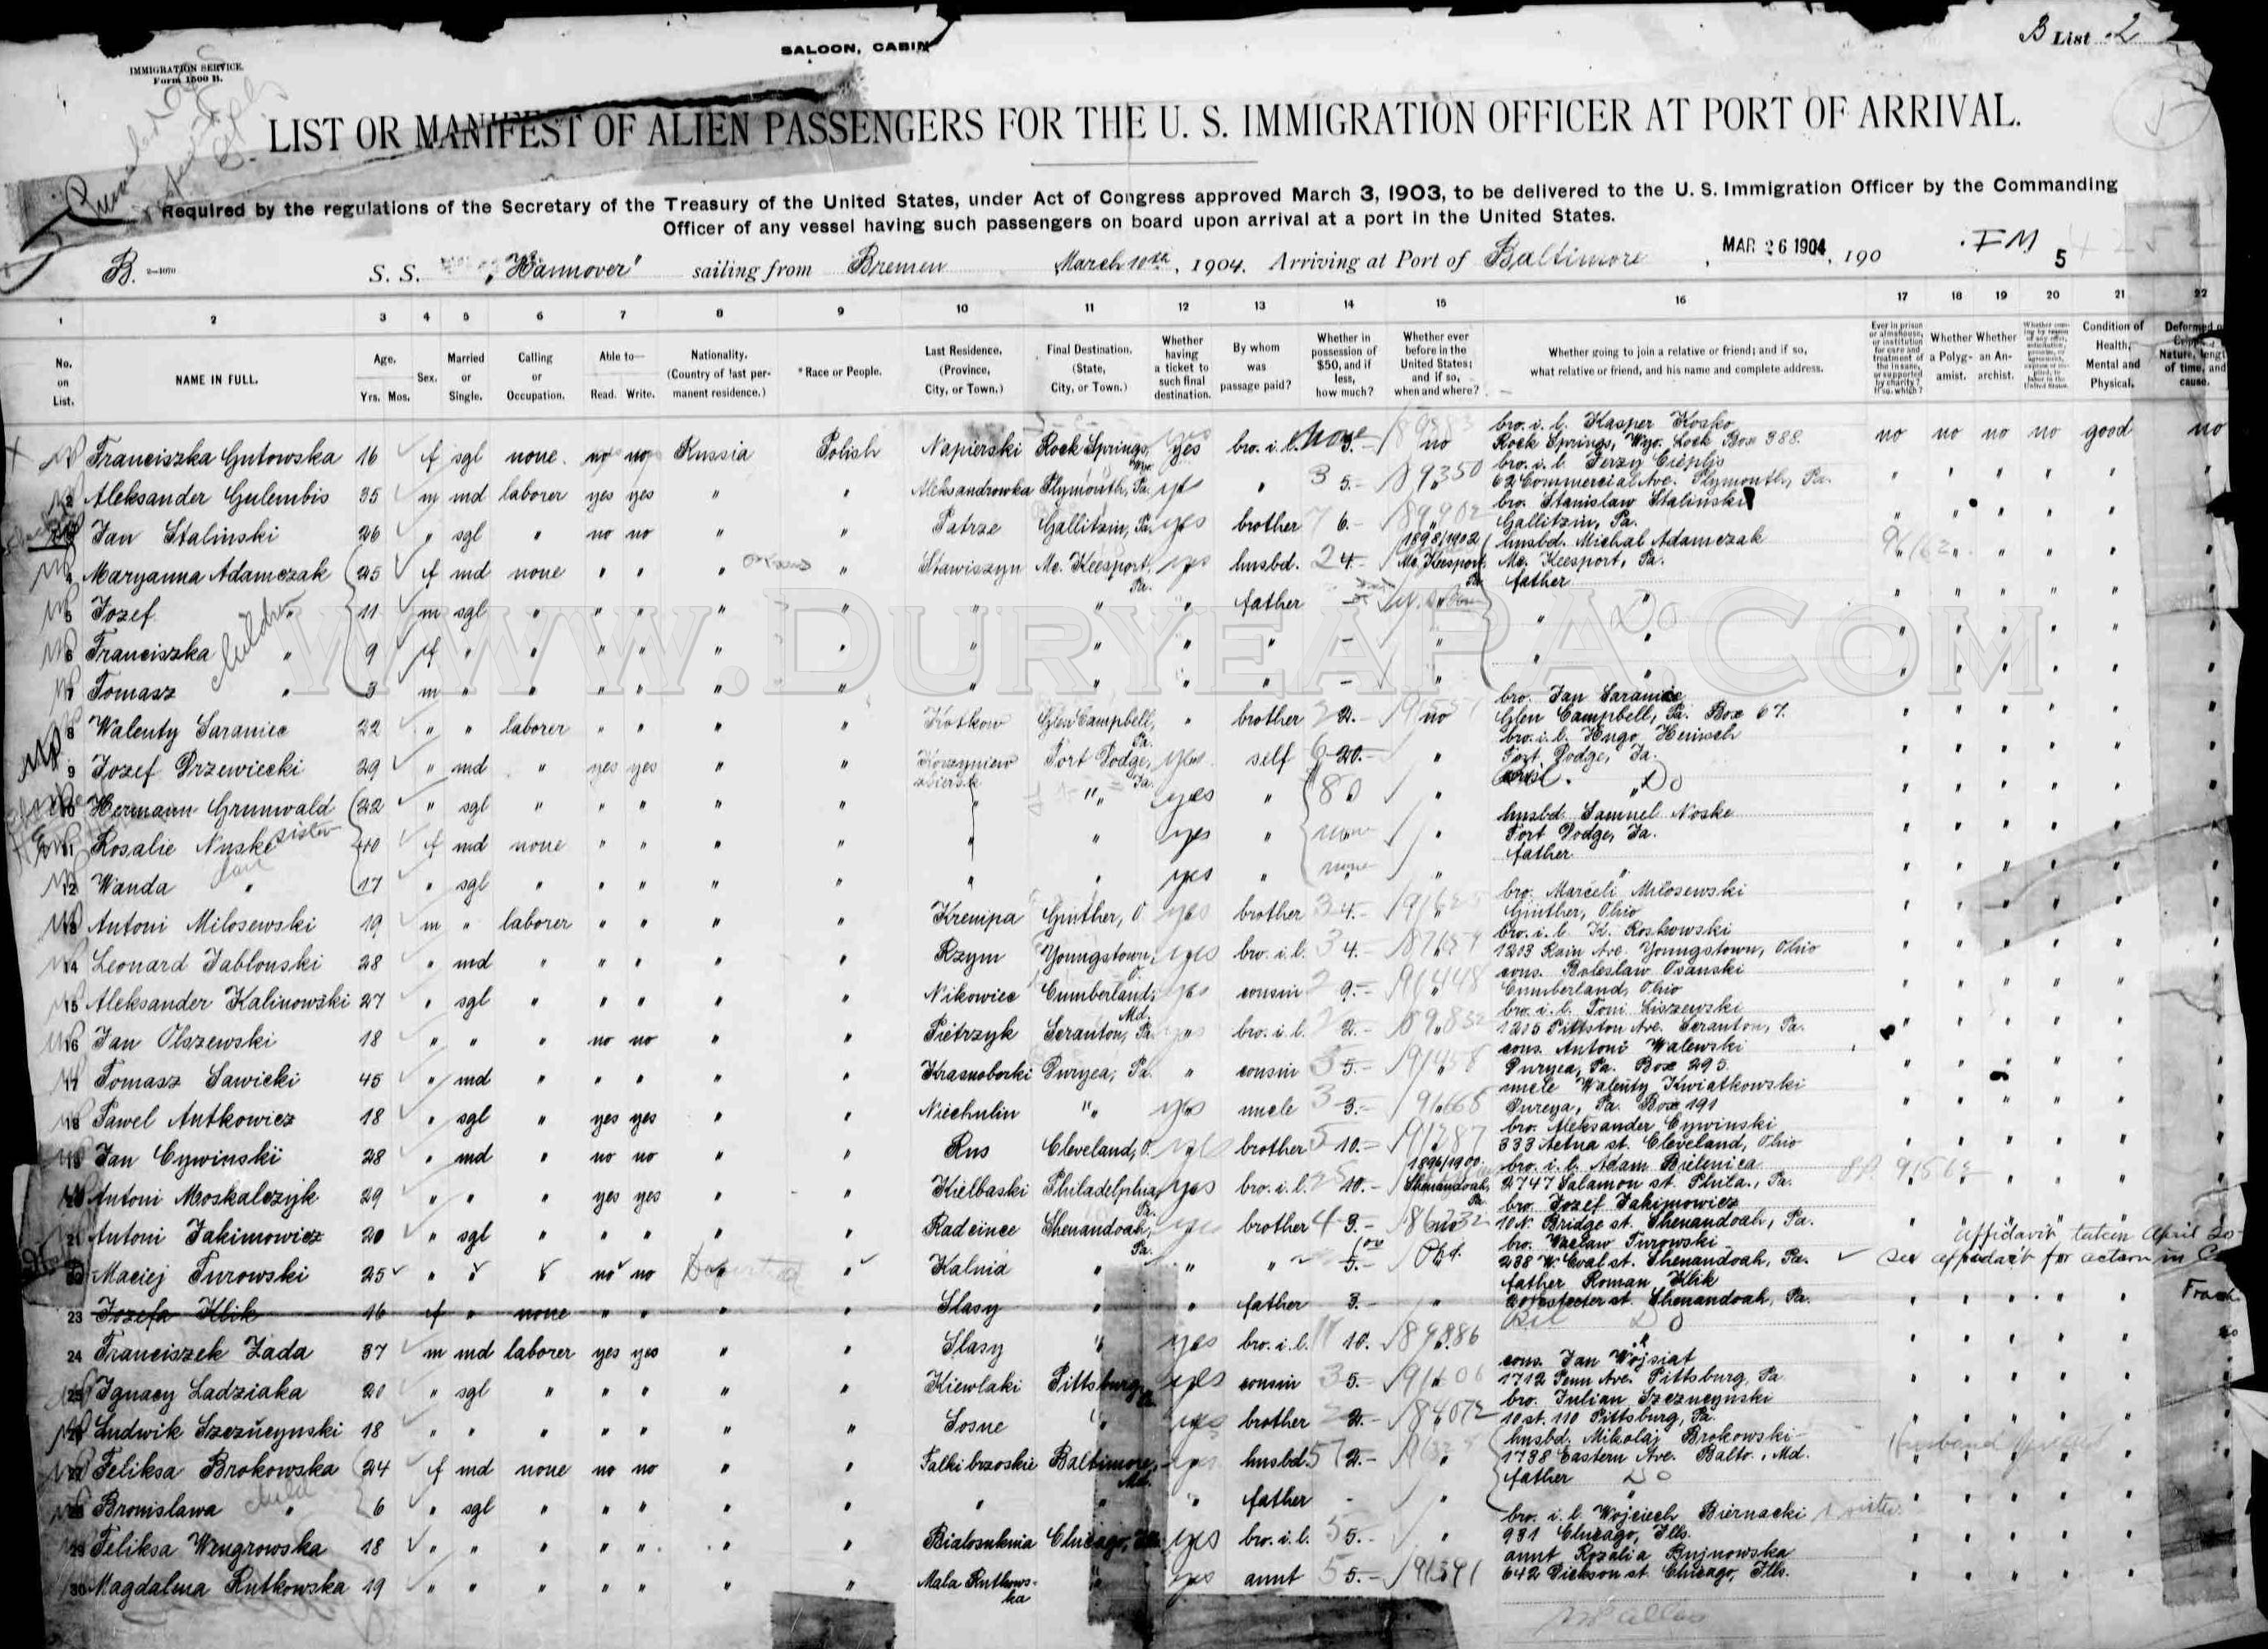 SALOON, CABIN
B List 2
IMMIGRATION SERVICE.
Form 1500 B.
LIST OR MANIFEST OF ALIEN PASSENGERS FOR THE U. S. IMMIGRATION OFFICER AT PORT OF ARRIVAL.
Required by the regulations of the Secretary of the Treasury of the United States, under Act of Congress approved March 3, 1903, to be delivered to the U. S. Immigration Officer by the Commanding
Officer of any vessel having such passengers on board upon arrival at a port in the United States.
B. 2—1070 S. S. "Hannover" sailing from Bremen March 10th, 1904. Arriving at Port of Baltimore, MAR 26 1904, 190 5
1 2 3 4 5 6 7 8 9 10 11 12 13 14 15 16 17 18 19 20 21 22
No. on List. NAME IN FULL. Age. Yrs. Mos. Sex. Married or Single. Calling or Occupation. Able to— Read. Write. Nationality. (Country of last permanent residence.) *Race or People. Last Residence. (Province, City, or Town.) Final Destination. (State, City, or Town.) Whether having a ticket to such final destination. By whom was passage paid? Whether in possession of $50, and if less, how much? Whether ever before in the United States; and if so, when and where? Whether going to join a relative or friend; and if so, what relative or friend, and his name and complete address. Ever in prison or almshouse, or institution for care and treatment of the insane, or supported by charity? If so, which? Whether a Polygamist. Whether an Anarchist. Condition of Health, Mental and Physical.
Franciszka Gutowska 16 f sgl none no no Russia Polish Napierski Rock Springs, Wyo. yes bro. i. l. none no bro. i. l. Kasper Kosko Rock Springs, Wyo. Lock Box 388. no no no no good no
2 Aleksander Gulembis 35 m md laborer yes yes " " Aleksandrowka Plymouth, Pa. yes " 5.- bro. i. l. Jerzy 62 Commercial Ave. Plymouth, Pa.
Jan Stalinski 26 " sgl " no no " " Patrze Gallitzin, Pa. yes brother 6.- bro. Stanislaw Stalinski Gallitzin, Pa.
4 Maryanna Adamczak 25 f md none " " " " Stawiszyn Mc. Keesport, Pa. yes husbd. 4.- 1898/1902 Mc. Keesport, Pa. husbd. Michal Adamczak Mc. Keesport, Pa.
5 Jozef " 11 m sgl " " " " " " " " father - " father "
children
6 Franciszka " 9 f " " " " " " " " " " - " " "
7 Tomasz " 3 m " " " " " " " " " " - " " "
8 Walenty Saraniec 22 " " laborer " " " " Kotkow Glen Campbell, Pa. " brother 2.- no bro. Jan Saraniec Glen Campbell, Pa. Box 67.
9 Jozef Drzewiecki 29 " md " yes yes " " Fort Dodge, Ia. yes self 20.- " bro. i. l. Hugo Heinsch Fort Dodge, Ia.
10 Hermann Grunwald 22 " sgl " " " " " " " yes " 80 " " Do
11 Rosalie Nuske sister 40 f md none " " " " " " yes " none " husbd. Samuel Noske Fort Dodge, Ia.
12 Wanda " 17 " sgl " " " " " " " yes " none " father "
13 Antoni Milosewski 19 m " laborer " " " " Krempa Ginther, O. yes brother 4.- bro. Marceli Milosewski Ginther, Ohio
14 Leonard Jablonski 28 " md " " " " " Rzym Youngstown, O. yes bro. i. l. 4.- bro. i. l. K. Roskowski 1203 Rain Ave. Youngstown, Ohio
15 Aleksander Kalinowski 27 " sgl " " " " " Nikowiec Cumberland, Md. yes cousin 9.- cons. Boleslaw Osanski Cumberland, Ohio
16 Jan Olszewski 18 " " " no no " " Pietrzyk Scranton, Pa. " bro. i. l. 2.- bro. i. l. Toni Liszewski 1215 Pittston Ave. Scranton, Pa.
17 Tomasz Sawicki 45 " md " " " " " Krasnoborki Duryea, Pa. " cousin 5.- cons. Antoni Walewski Duryea, Pa. Box 295.
18 Pawel Antkowicz 18 " sgl " yes yes " " Niechulin " yes uncle 3.- uncle Walenty Kwiatkowski Dureya, Pa. Box 191
19 Jan Cywinski 28 " md " no no " " Rus Cleveland, O. yes brother 10.- bro. Aleksander Cywinski 333 Aetna st. Cleveland, Ohio
20 Antoni Moskalczyk 29 " " " yes yes " " Kielbaski Philadelphia, Pa. yes bro. i. l. 10.- 1896/1900 Shenandoah, Pa. bro. i. l. Adam Bielenica 2747 Salamon st. Phila., Pa.
21 Antoni Jakimowicz 20 " sgl " " " " " Radcince Shenandoah, Pa. yes brother 3.- no bro. Jozef Jakimowicz 10 N. Bridge st. Shenandoah, Pa.
Affidavit taken April
Maciej Turowski 25 " " " no no Deported " Kalnia " " " 5.- bro. Waclaw Turowski 238 W. Coal st. Shenandoah, Pa. see affidavit for action in
23 Jozefa Klik 16 f " none " " " " Slasy " " father 3.- " father Roman Klik st. Shenandoah, Pa.
24 Franciszek Zada 37 m md laborer yes yes " " Slasy " yes bro. i. l. 10. Do
25 Ignacy Ladziaka 20 " sgl " " " " " Kiewlaki Pittsburg, Pa. yes cousin 5.- cons. Jan Wojsiat 1712 Penn Ave. Pittsburg, Pa.
26 Ludwik Szczucynski 18 " " " " " " " Sosne " yes brother 2.- bro. Julian Szczucynski 10 st. 110 Pittsburg, Pa.
27 Feliksa Brokowska 24 f md none no no " " Falki brzoskie Baltimore, Md. yes husbd. 2.- " husbd. Mikolaj Brokowski 1738 Eastern Ave. Balto., Md.
28 Bronislawa " child 6 " sgl " " " " " " " " father - " father Do
29 Feliksa Wengrowska 18 " " " " " " " Bialosuknia Chicago, Ills. yes bro. i. l. 5.- " bro. i. l. Wojciech Biernacki 931 Chicago, Ills.
30 Magdalena Rutkowska 19 " " " " " " " Mala Rutkowska " yes aunt 5.- aunt Rozalia Bujnowska 642 Dickson st. Chicago, Ills.
WWW.DURYEAPA.COM